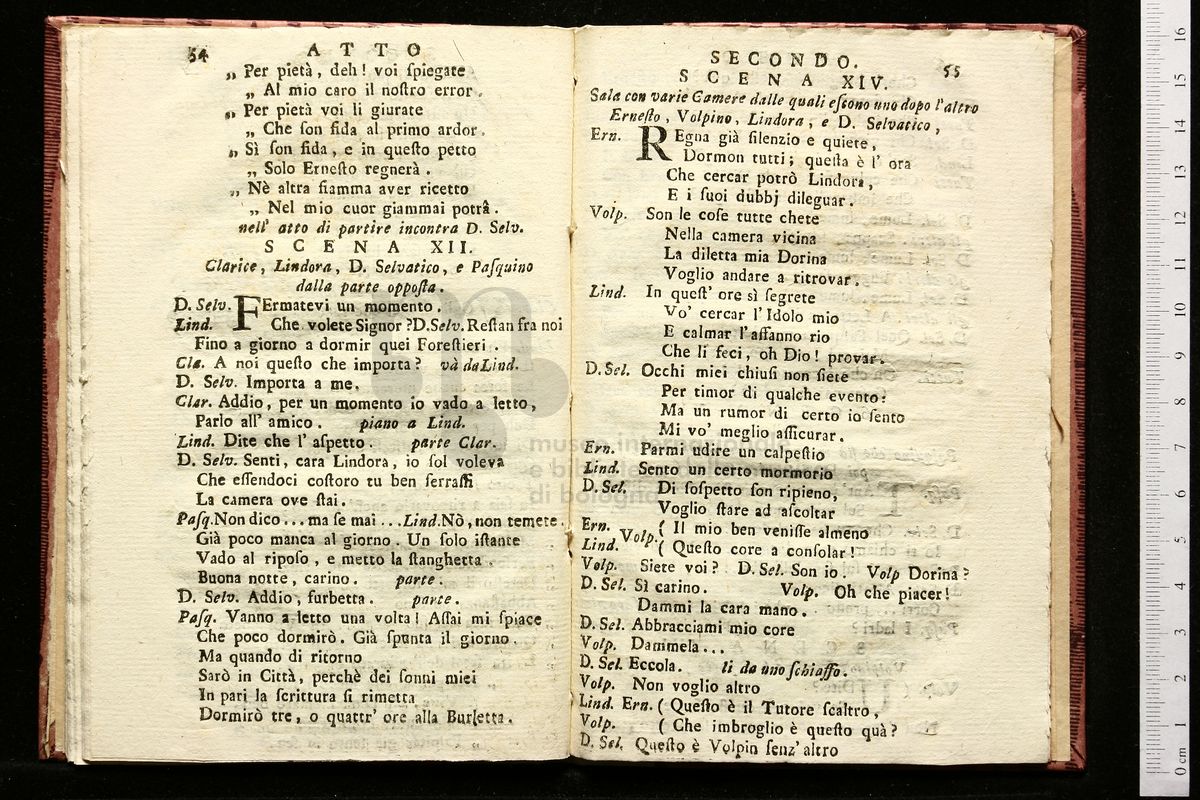 54 ATTO
„ Per pietà, deh! voi ſpiegate
„ Al mio caro il noſtro error.
„ Per pietà voi li giurate
„ Che ſon fida al primo ardor.
„ Sì ſon fida, e in queſto petto
„ Solo Erneſto regnerà.
„ Nè altra fiamma aver ricetto
„ Nel mio cuor giammai potrà.
nell' atto di partire incontra D. Selv.
SCENA XII.
Clarice, Lindora, D. Selvatico, e Paſquino
dalla parte oppoſta.
D. Selv. FErmatevi un momento.
Lind. Che volete Signor? D. Selv. Reſtan fra noi
Fino a giorno a dormir quei Foreſtieri.
Cla. A noi queſto che importa? và da Lind.
D. Selv. Importa a me.
Clar. Addio, per un momento io vado a letto,
Parlo all' amico. piano a Lind.
Lind. Dite che l' aſpetto. parte Clar.
D. Selv. Senti, cara Lindora, io ſol voleva
Che eſſendoci coſtoro tu ben ſerraſſi
La camera ove ſtai.
Paſq. Non dico... ma ſe mai... Lind. Nò, non temete.
Già poco manca al giorno. Un ſolo iſtante
Vado al ripoſo, e metto la ſtanghetta.
Buona notte, carino. parte.
D. Selv. Addio, furbetta. parte.
Paſq. Vanno a letto una volta! Aſſai mi ſpiace
Che poco dormirò. Già ſpunta il giorno.
Ma quando di ritorno
Sarò in Città, perchè dei ſonni miei
In pari la ſcrittura ſi rimetta
Dormirò tre, o quattr' ore alla Burletta.
SECONDO. 55
SCENA XIV.
Sala con varie Camere dalle quali eſcono uno dopo l'altro
Erneſto, Volpino, Lindora, e D. Selvatico,
Ern. REgna già ſilenzio e quiete,
Dormon tutti; queſta è l' ora
Che cercar potrò Lindora,
E i ſuoi dubbj dileguar.
Volp. Son le coſe tutte chete
Nella camera vicina
La diletta mia Dorina
Voglio andare a ritrovar.
Lind. In queſt' ore sì ſegrete
Vo' cercar l'Idolo mio
E calmar l'affanno rio
Che li feci, oh Dio! provar.
D. Sel. Occhi miei chiuſi non ſiete
Per timor di qualche evento:
Ma un rumor di certo io ſento
Mi vo' meglio aſſicurar.
Ern. Parmi udire un calpeſtio
Lind. Sento un certo mormorio
D. Sel. Di ſoſpetto ſon ripieno,
Voglio ſtare ad aſcoltar
Ern. Volp. ( Il mio ben veniſſe almeno
Lind. ( Queſto core a conſolar!
Volp. Siete voi? D. Sel. Son io. Volp Dorina?
D. Sel. Sì carino. Volp. Oh che piacer!
Dammi la cara mano.
D. Sel. Abbracciami mio core
Volp. Dammela...
D. Sel. Eccola. li da uno ſchiaffo.
Volp. Non voglio altro
Lind. Ern. ( Queſto è il Tutore ſcaltro,
Volp. ( Che imbroglio è queſto quà?
D. Sel. Queſto è Volpin ſenz' altro
museo internazionale
e biblioteca
di bologna
0 cm 1 2 3 4 5 6 7 8 9 10 11 12 13 14 15 16